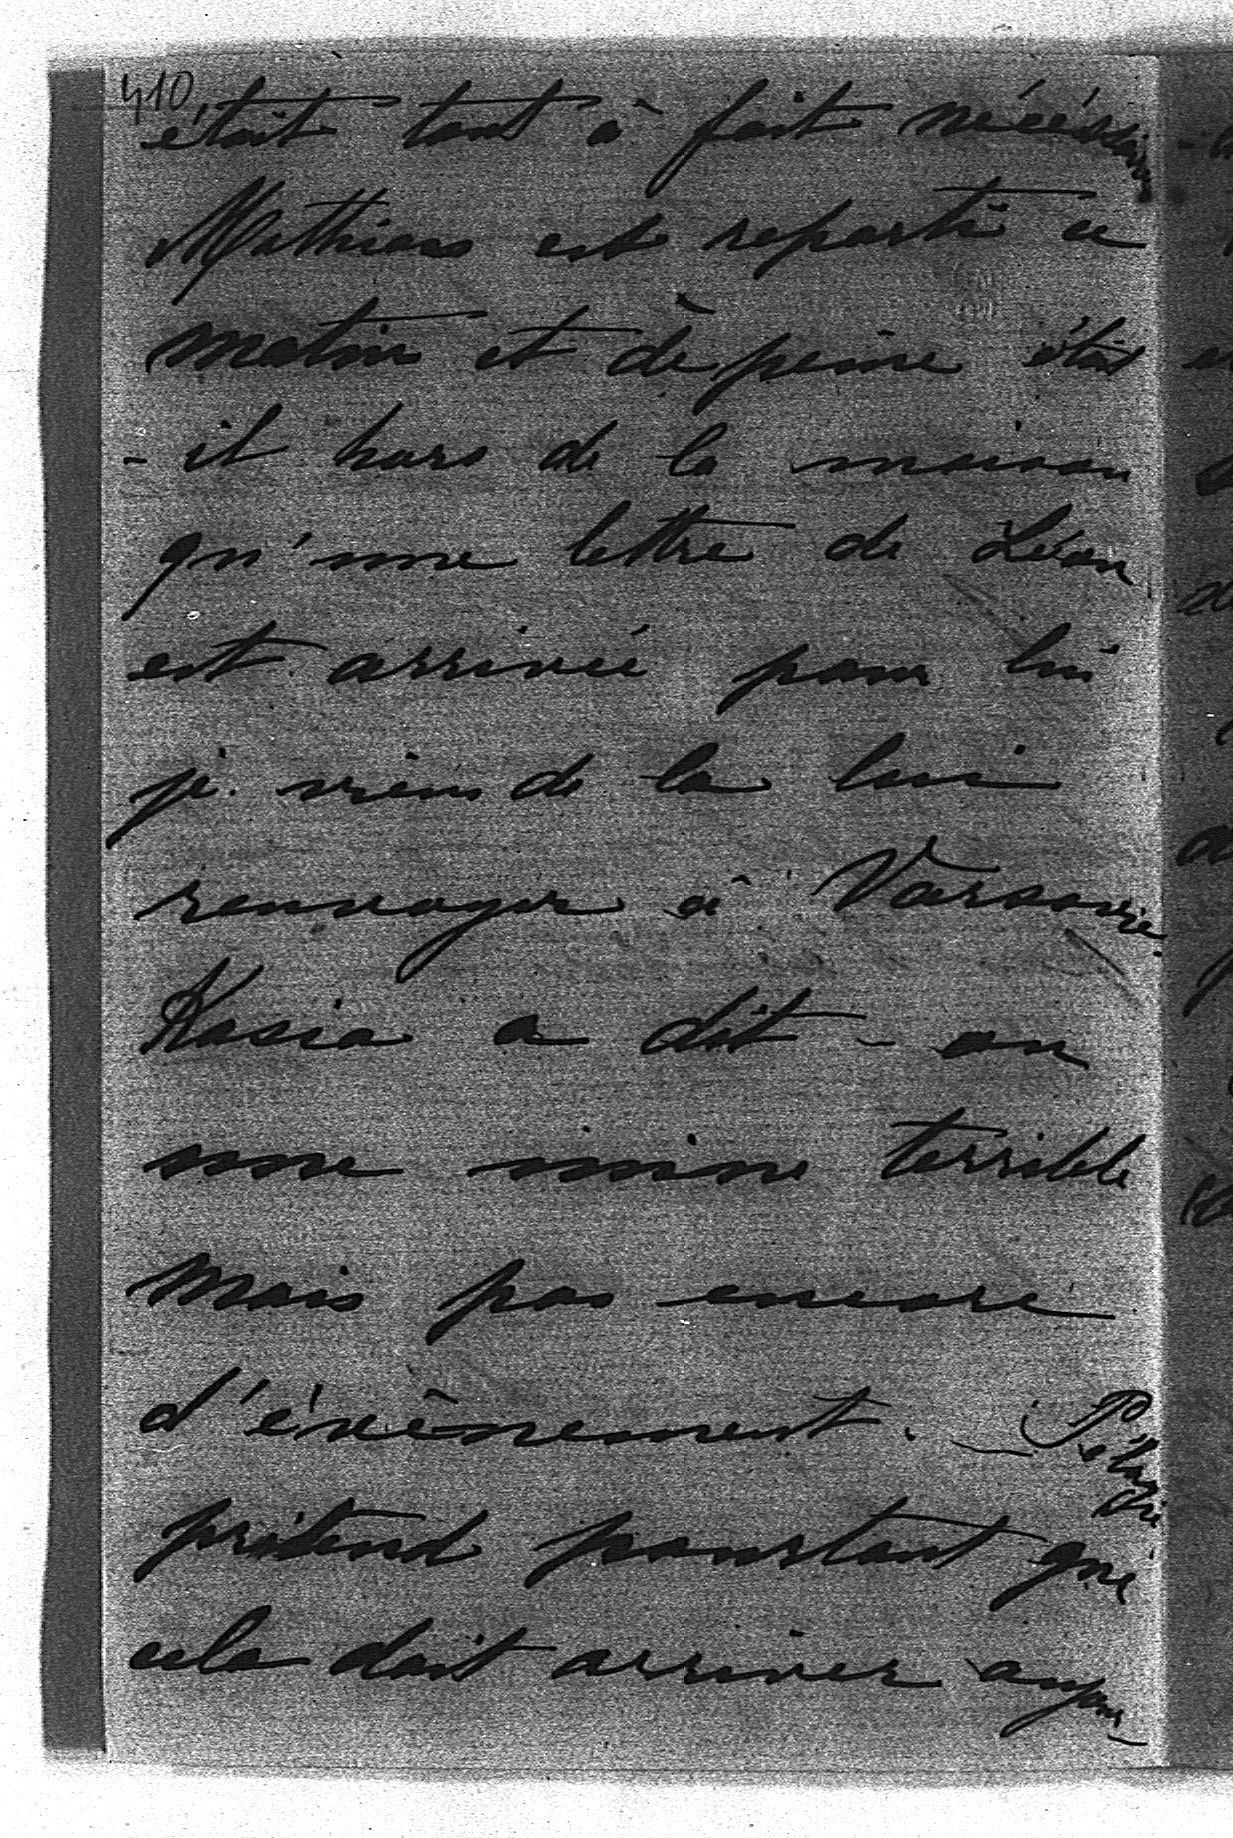 410
était tout à fait nécéssaire
Mathias est reparti ce
matin et à peine était
- il hors de la maison
qu'une lettre de Léon
est arrivée pour lui
je viens de la lui
renvoyer à Varsovie
Kasia a dit-on
une mine terrible
mais pas encore
d'évènement. — Pélagie
prétend pourtant que
cela doit arriver aujour-